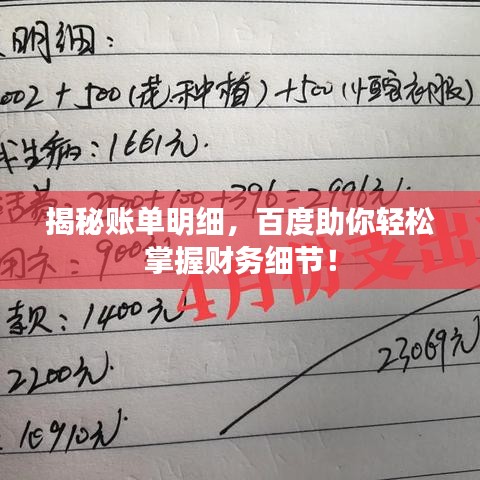 明细:
002+500(花.种植)+500(小宝衣服)
生病:1661元.
+100+396=2996元
揭秘账单明细，百度助你轻松
掌握财务细节！
900元
4月份支出
款:1400元
23069元
2200元.
16910元